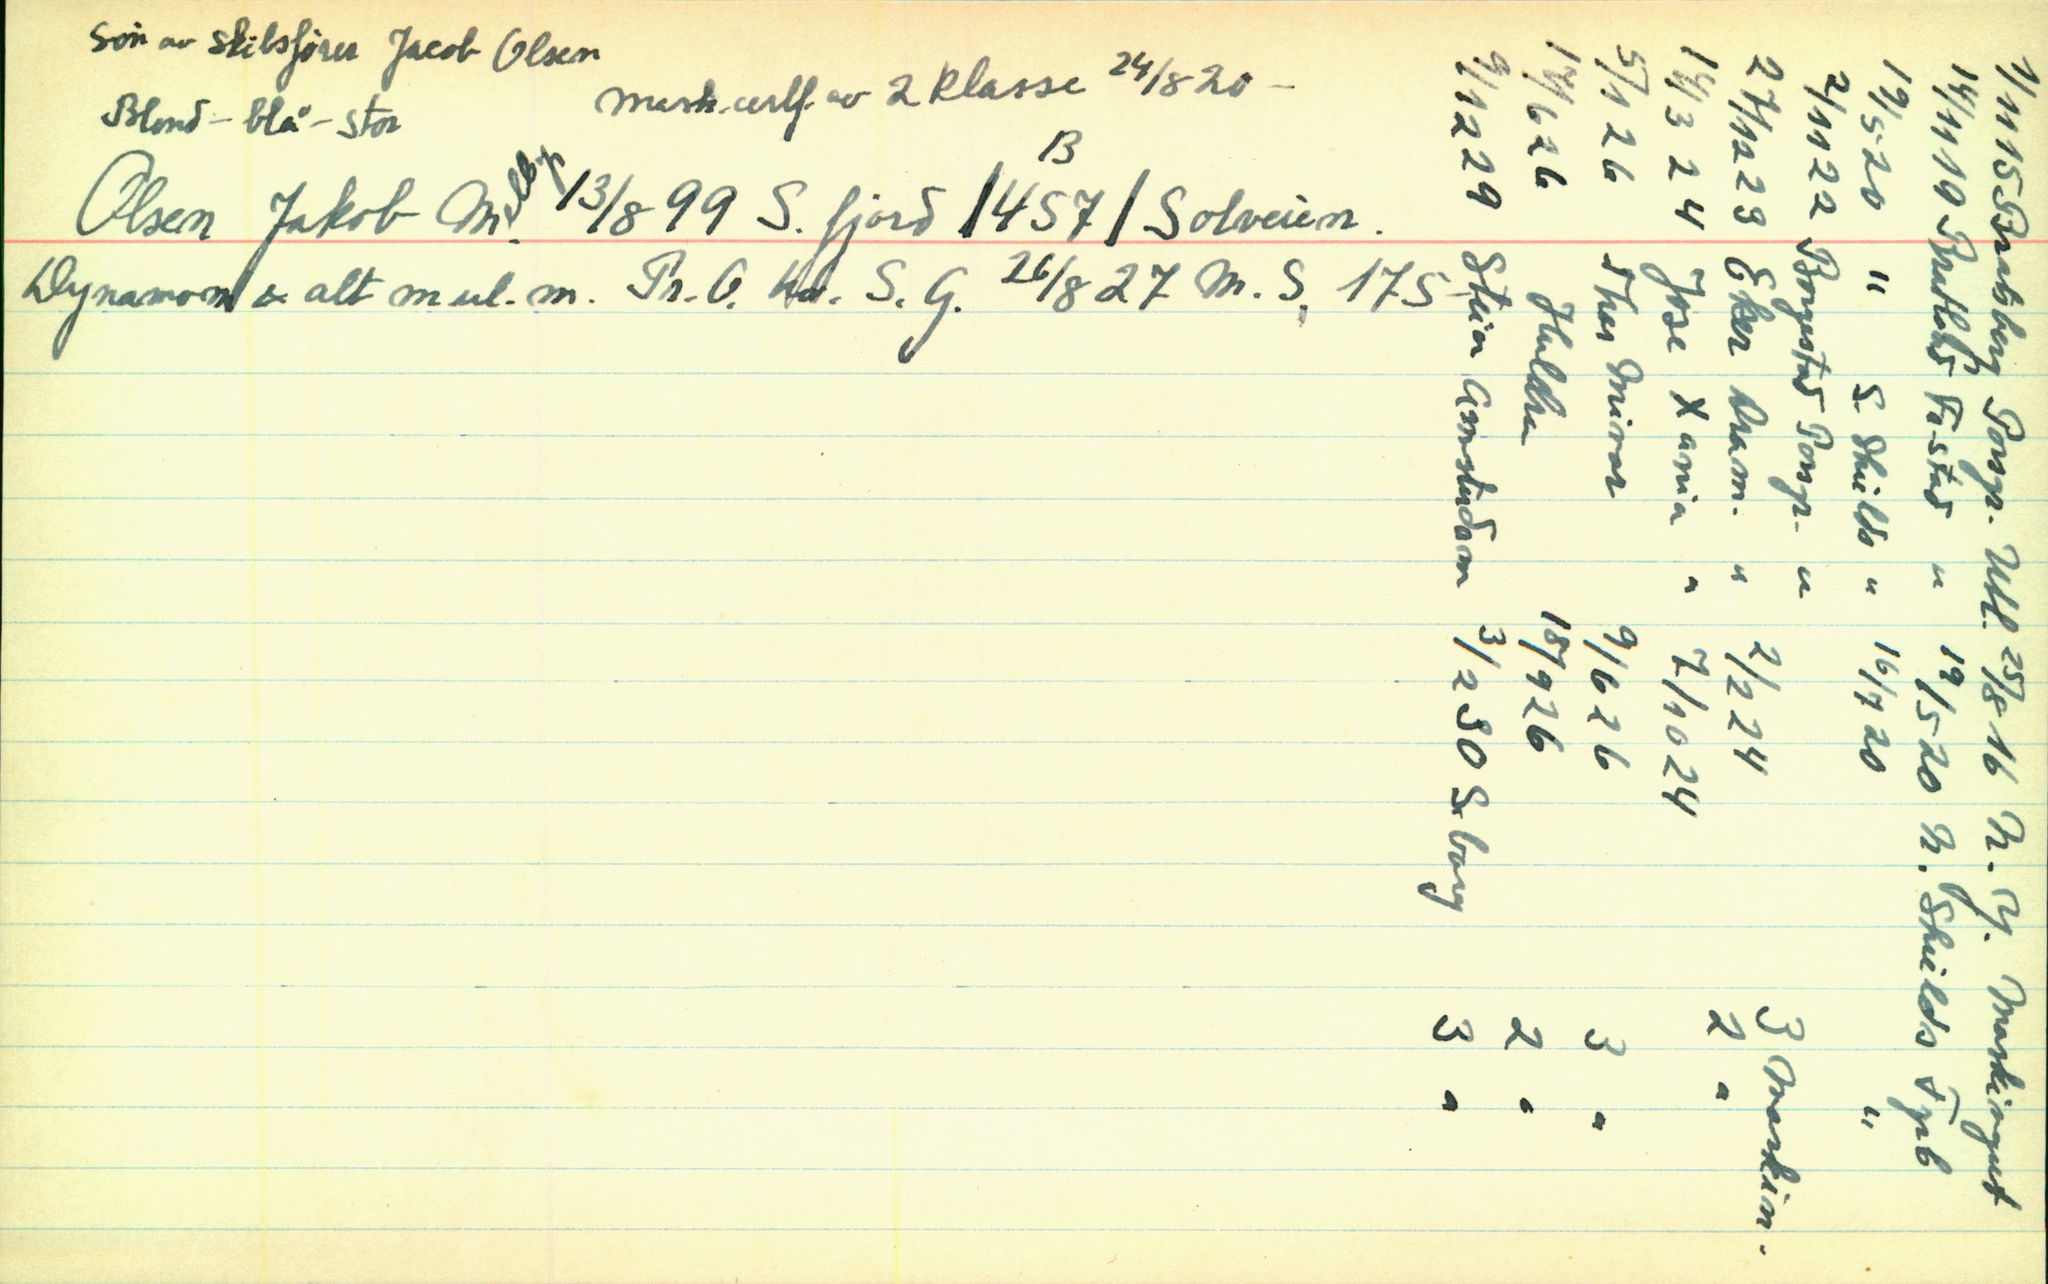 Søn av skibsfører Jacob Olsen
Blond - blå - stor
mask. certf. av 2 klasse 24/8 20 -
B
Olsen Jakob M. 13/8 99 S. fjord /457/ Solveien.
Dynamom & alt m ul. m. Pr. O. S. G. 26/8 27 M. S. 175
1/11 15 Bratsberg Porsgr. Utl. 25/8 16 N. Y. Maskingut
14/11 19 Fr.stad " 19/5 20 N. Shields Fyrb
19/5 20 " S. Shields " 16/7 20 "
2/11 22 Borgestad Porsgr. "
27/12 23 Eker Dram. " 2/2 24 3 Maskin.
14/3 24 Jose X ania " 7/10 24 2 "
5/1 26 Thor Minor 9/6 26 3 "
17/6 26 Huldra 18/9 26 2 "
9/12 29 Stein Amsterdam 3/2 30 S. borg 3 "